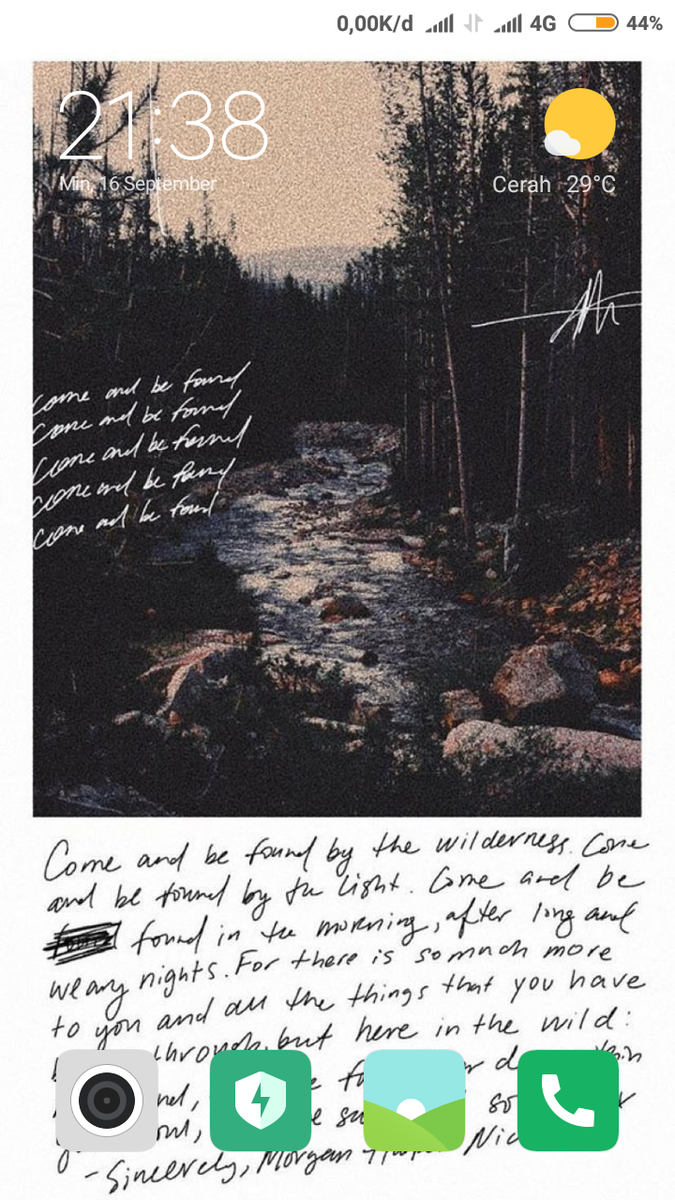 0,00K/d 4G 44%
21:38
Min, 16 September
Cerah 29°C
come and be found
come and be found
come and be found
come and be found
come and be found
Come and be found by the wilderness. Come
and be found by the light. Come and be
found in the morning, after long and
weary nights. For there is so much more
to you and all the things that you have
through, but here in the wild:
so
- Sincerely, Morgan